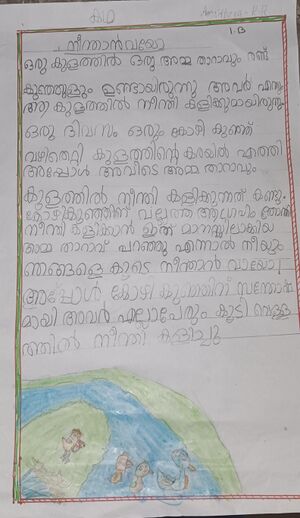 കഥ
1.B
നീന്താൻ വായോ
ഒരു കുളത്തിൽ ഒരു അമ്മ താറാവും രണ്ട്
കുഞ്ഞുങ്ങളും ഉണ്ടായിരുന്നു അവർ എന്നും
ആ കുളത്തിൽ നീന്തി കളിക്കുമായിരുന്നു
ഒരു ദിവസം ഒരു കോഴി കുഞ്ഞ്
വഴിതെറ്റി കുളത്തിന്റെ കരയിൽ എത്തി
അപ്പോൾ അവിടെ അമ്മ താറാവും
കുളത്തിൽ നീന്തി കളിക്കുന്നത് കണ്ടു.
കോഴികുഞ്ഞിന് വല്ലാത്ത ആഗ്രഹം തോന്നി
നീന്തി കളിക്കാൻ ഇത് മനസ്സിലാക്കിയ
അമ്മ താറാവ് പറഞ്ഞു എന്നാൽ നീയും
ഞങ്ങളെ കൂടെ നീന്താൻ വായോ!
അപ്പോൾ കോഴി കുഞ്ഞിന് സന്തോഷ
മായി അവർ എല്ലാപേരും കൂടി വെള്ള
ത്തിൽ നീന്തി കളിച്ചു